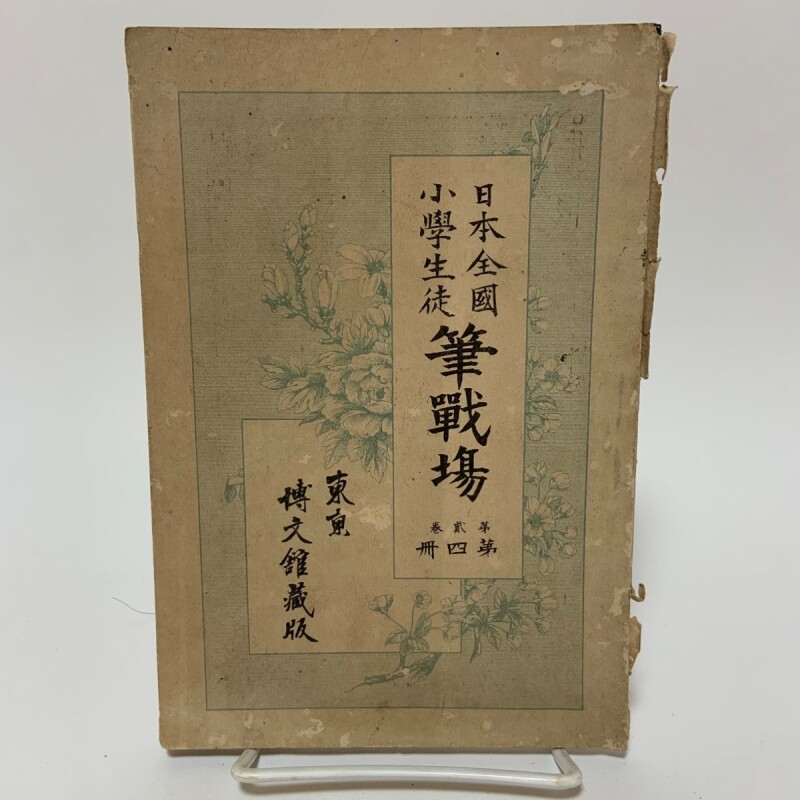 日本全國
小學生徒
筆戰塲
第貳卷
第四冊
東京
博文館藏版